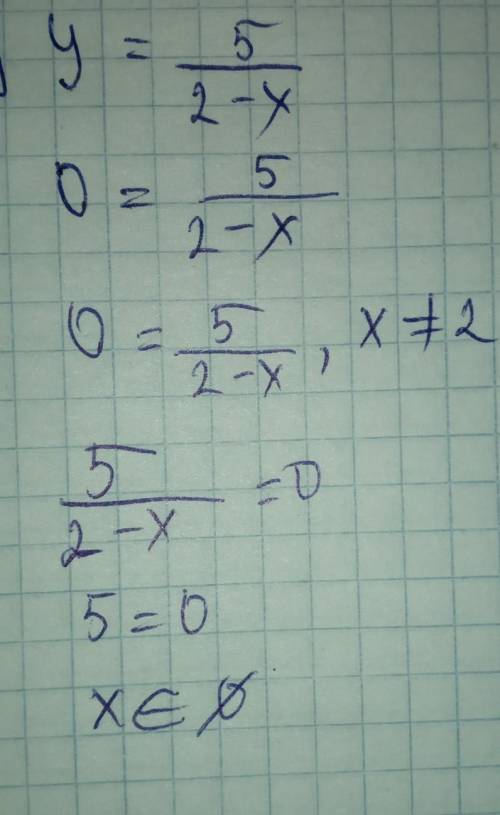 y = 5/(2-x)
0 = 5/(2-x)
0 = 5/(2-x), x ≠ 2
5/(2-x) = 0
5 = 0
x ∈ ∅